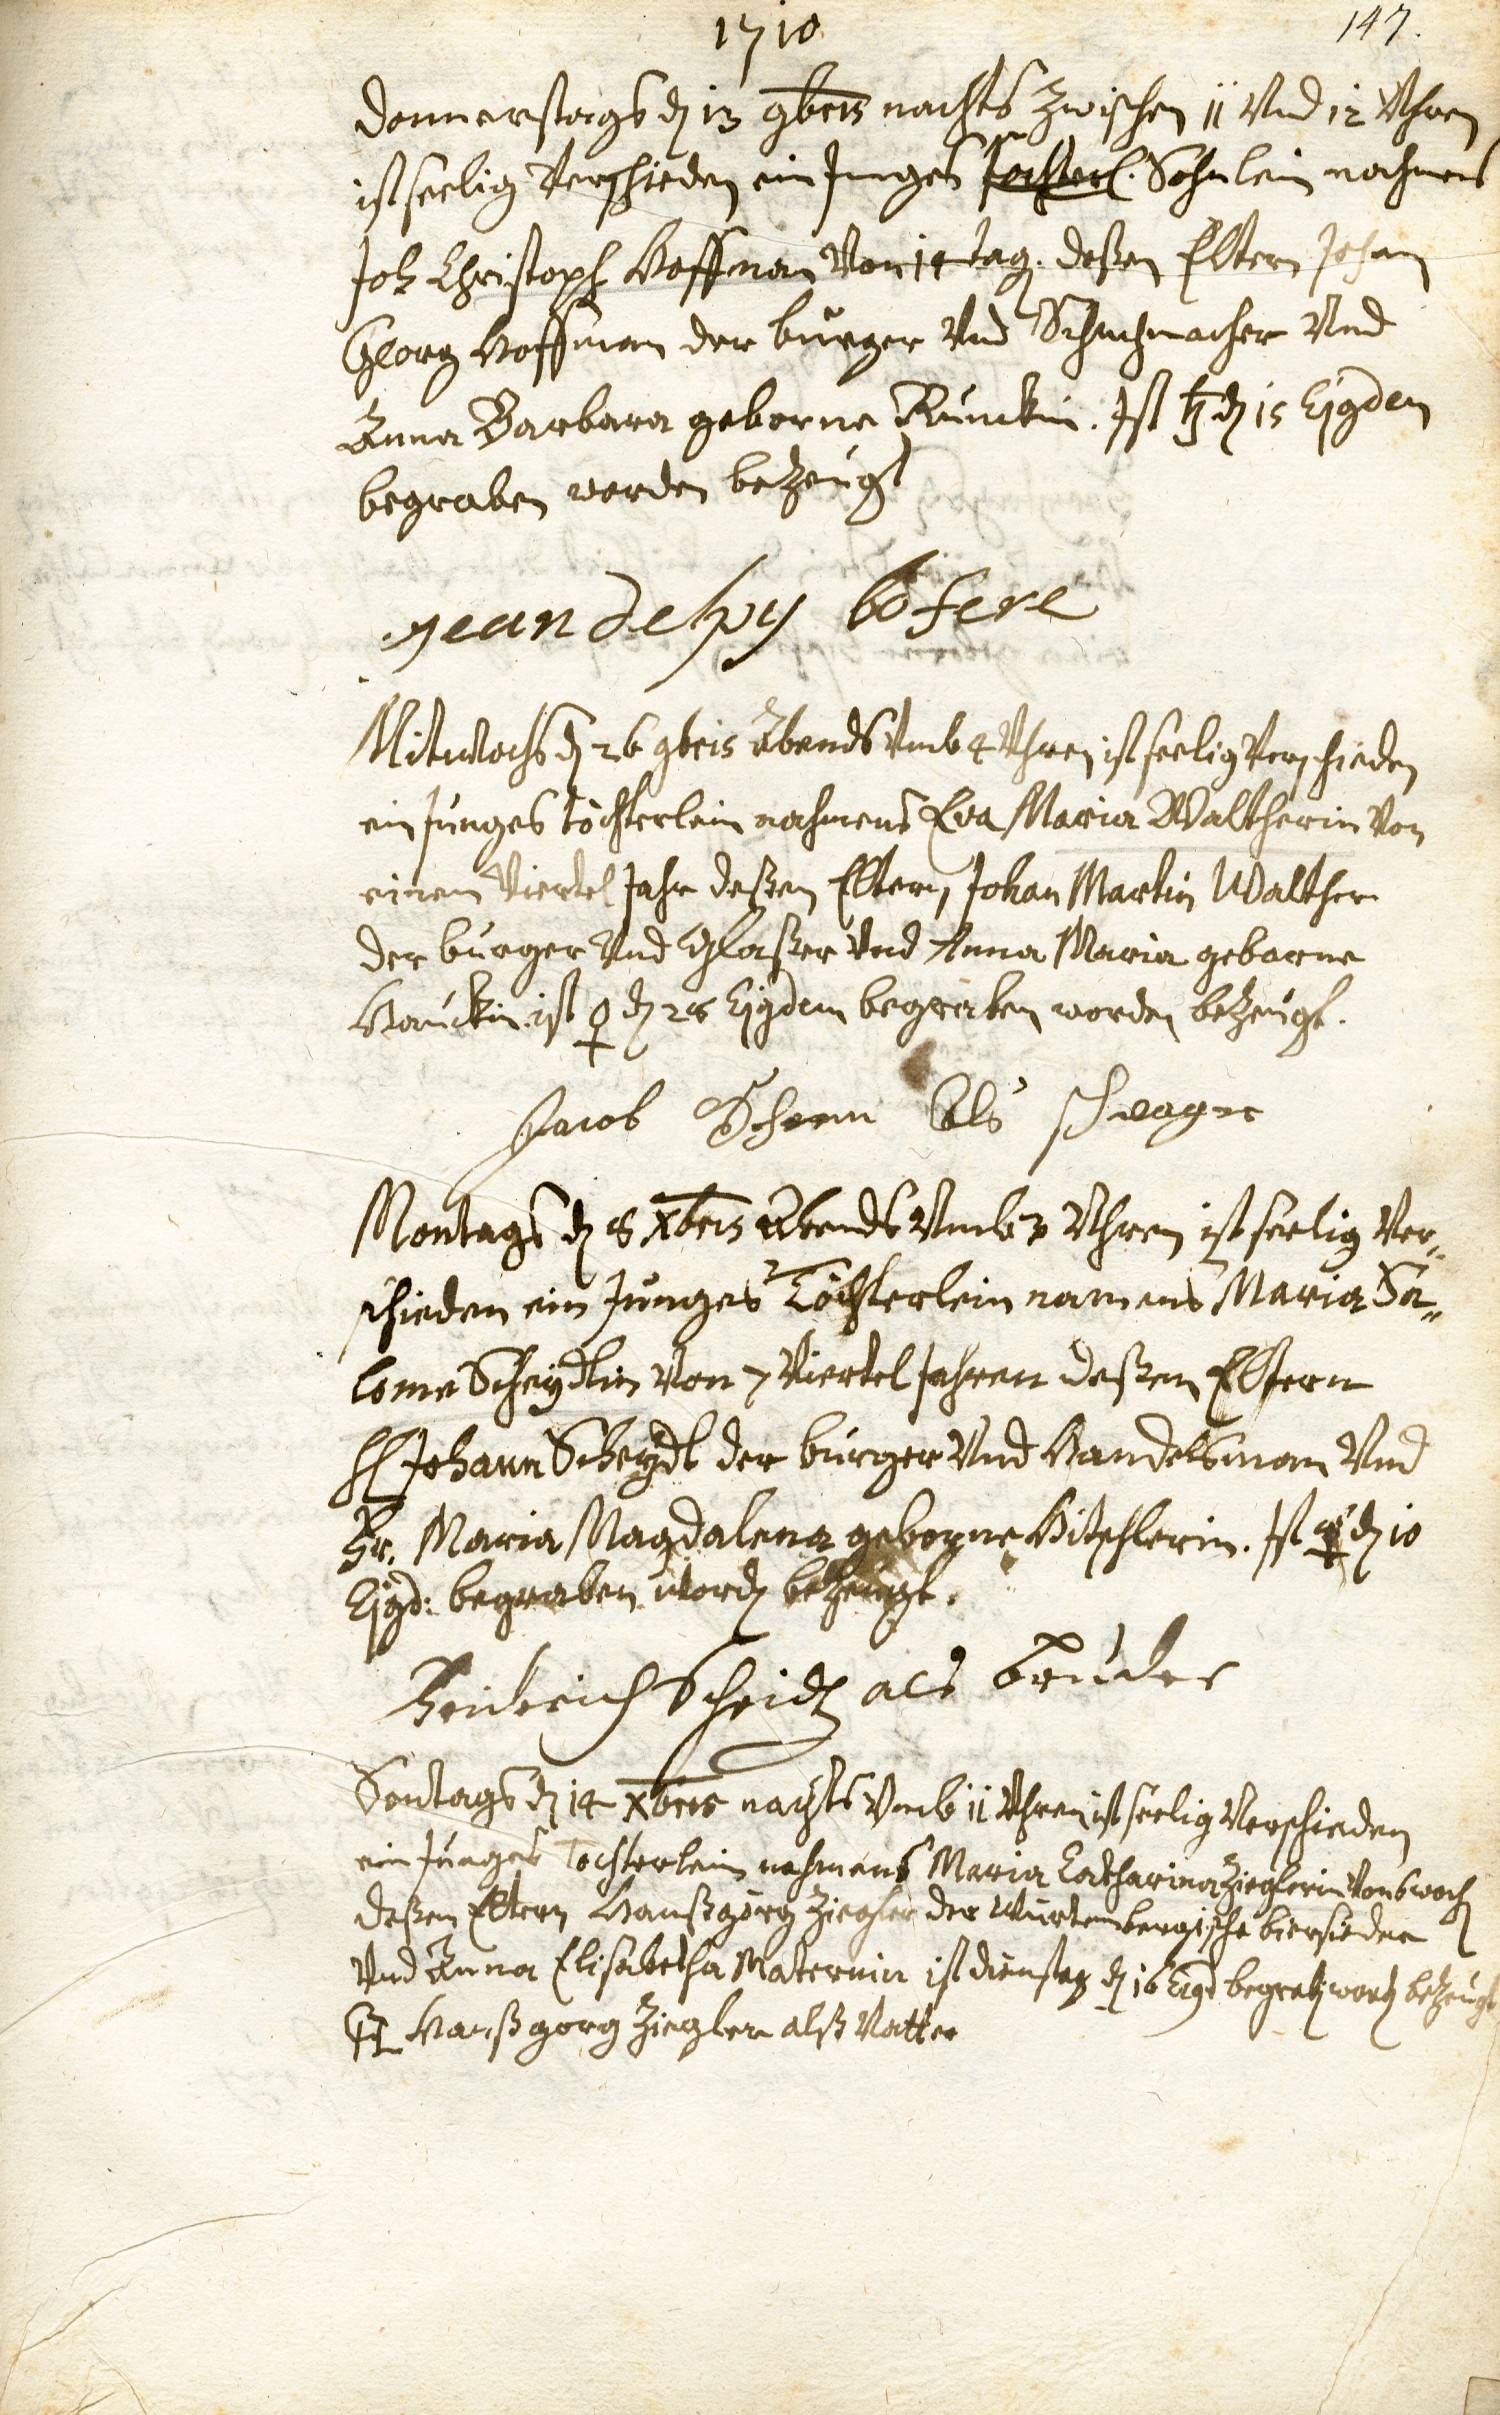 1710
147.
Donnerstags dȝ 13 9bris nachts Zwischen 11 Vnd 12 Vhren
ist seelig Verschieden ein Junges Töchterl. Söhnlein nahmens
Joh Christoph Hoffman Von 14 tag. deßen Eltern Johan
Georg Hoffman der burger Vnd Schuhmacher Vnd
Anna Barbara geborne Runckin. Ist ♄ dȝ 15 Ejgdem
begraben worden bezeugt
Jean
Mitwochs dȝ 26 9bris Abends Vmb 4 Vhren ist seelig Verschieden
ein Junges töchterlein nahmens Eva Maria Waltherin Von
einem Viertel Jahr deßen Eltern, Johan Martin Walther
der burger Vnd Glaßer Vnd Anna Maria geborne
Hauckin. ist ♀ dȝ 28 Ejgdem begraben worden bezeugt.
Jacob als schwager
Montags dȝ 8 Xbris Abends Vmb 3 Vhren ist seelig Ver„
schieden ein Junges Töchterlein namens Maria Sa„
lome Scheydtin Von 7 Viertel Jahren deßen Eltern
H Johann Scheydt der burger Vnd Handelsman Vnd
Fr. Maria Magdalena geborne Hitschlerin. Ist ☿ dȝ 10
Ejgd: begraben word bezeugt.
Heinrich Scheidt als bruder
Sontags dȝ 14 Xbris nachts Vmb 11 Vhren ist seelig Verschieden
ein Junges Töchterlein nahmens Maria Catharina Zieglerin Von 6 woch
deßen Eltern Hanßgörg Ziegler der Würtembergische biersieder
Vnd Anna Elisabetha Maternin ist dienstag dȝ 16 Ejgd begrab word bezeugt
Hanß gorg Ziegler alß Vatter